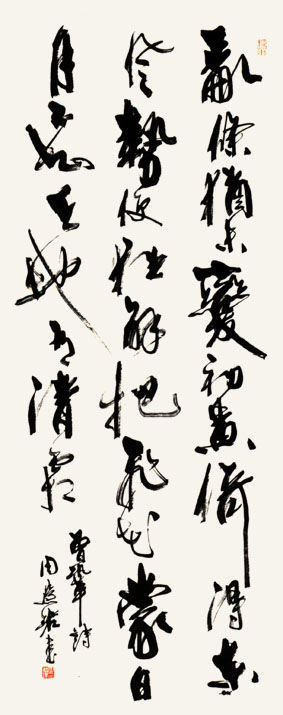 亂條猶未變初黃倚得東
風勢便狂解把飛花蒙日
月不知天地有清霜
曾鞏詩
周慧珺書